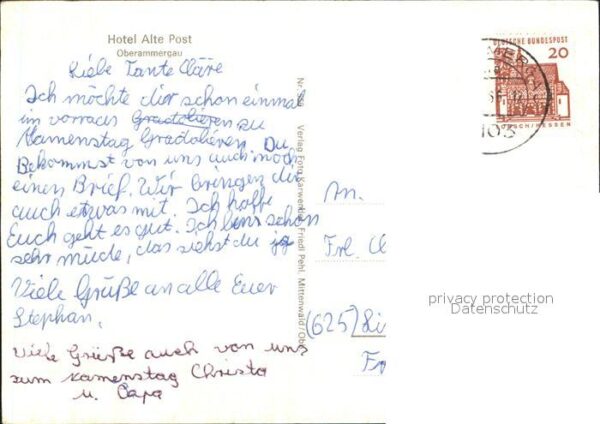 Hotel Alte Post
Oberammergau
Liebe Tante Cläre
Ich möchte dir schon einmal
im vorraus Gradolieren zu
Namenstag Gradolieren. Du
Bekommst von uns auch noch
einen Brief. Wir bringen dir
auch etwas mit. Ich hoffe
Euch geht es gut. Ich bins schon
sehr müde, das siehst du ja
Viele Grüße an alle Euer
Stephan.
Viele Grüße auch von uns
zum Namenstag Christa
u. Papa
Verlag Foto Karwendel, Friedl Pehl, Mittenwald/Obb
DEUTSCHE BUNDESPOST
20
LORSCH/HESSEN
An.
Frl. Cl
(625) Li
privacy protection
Datenschutz